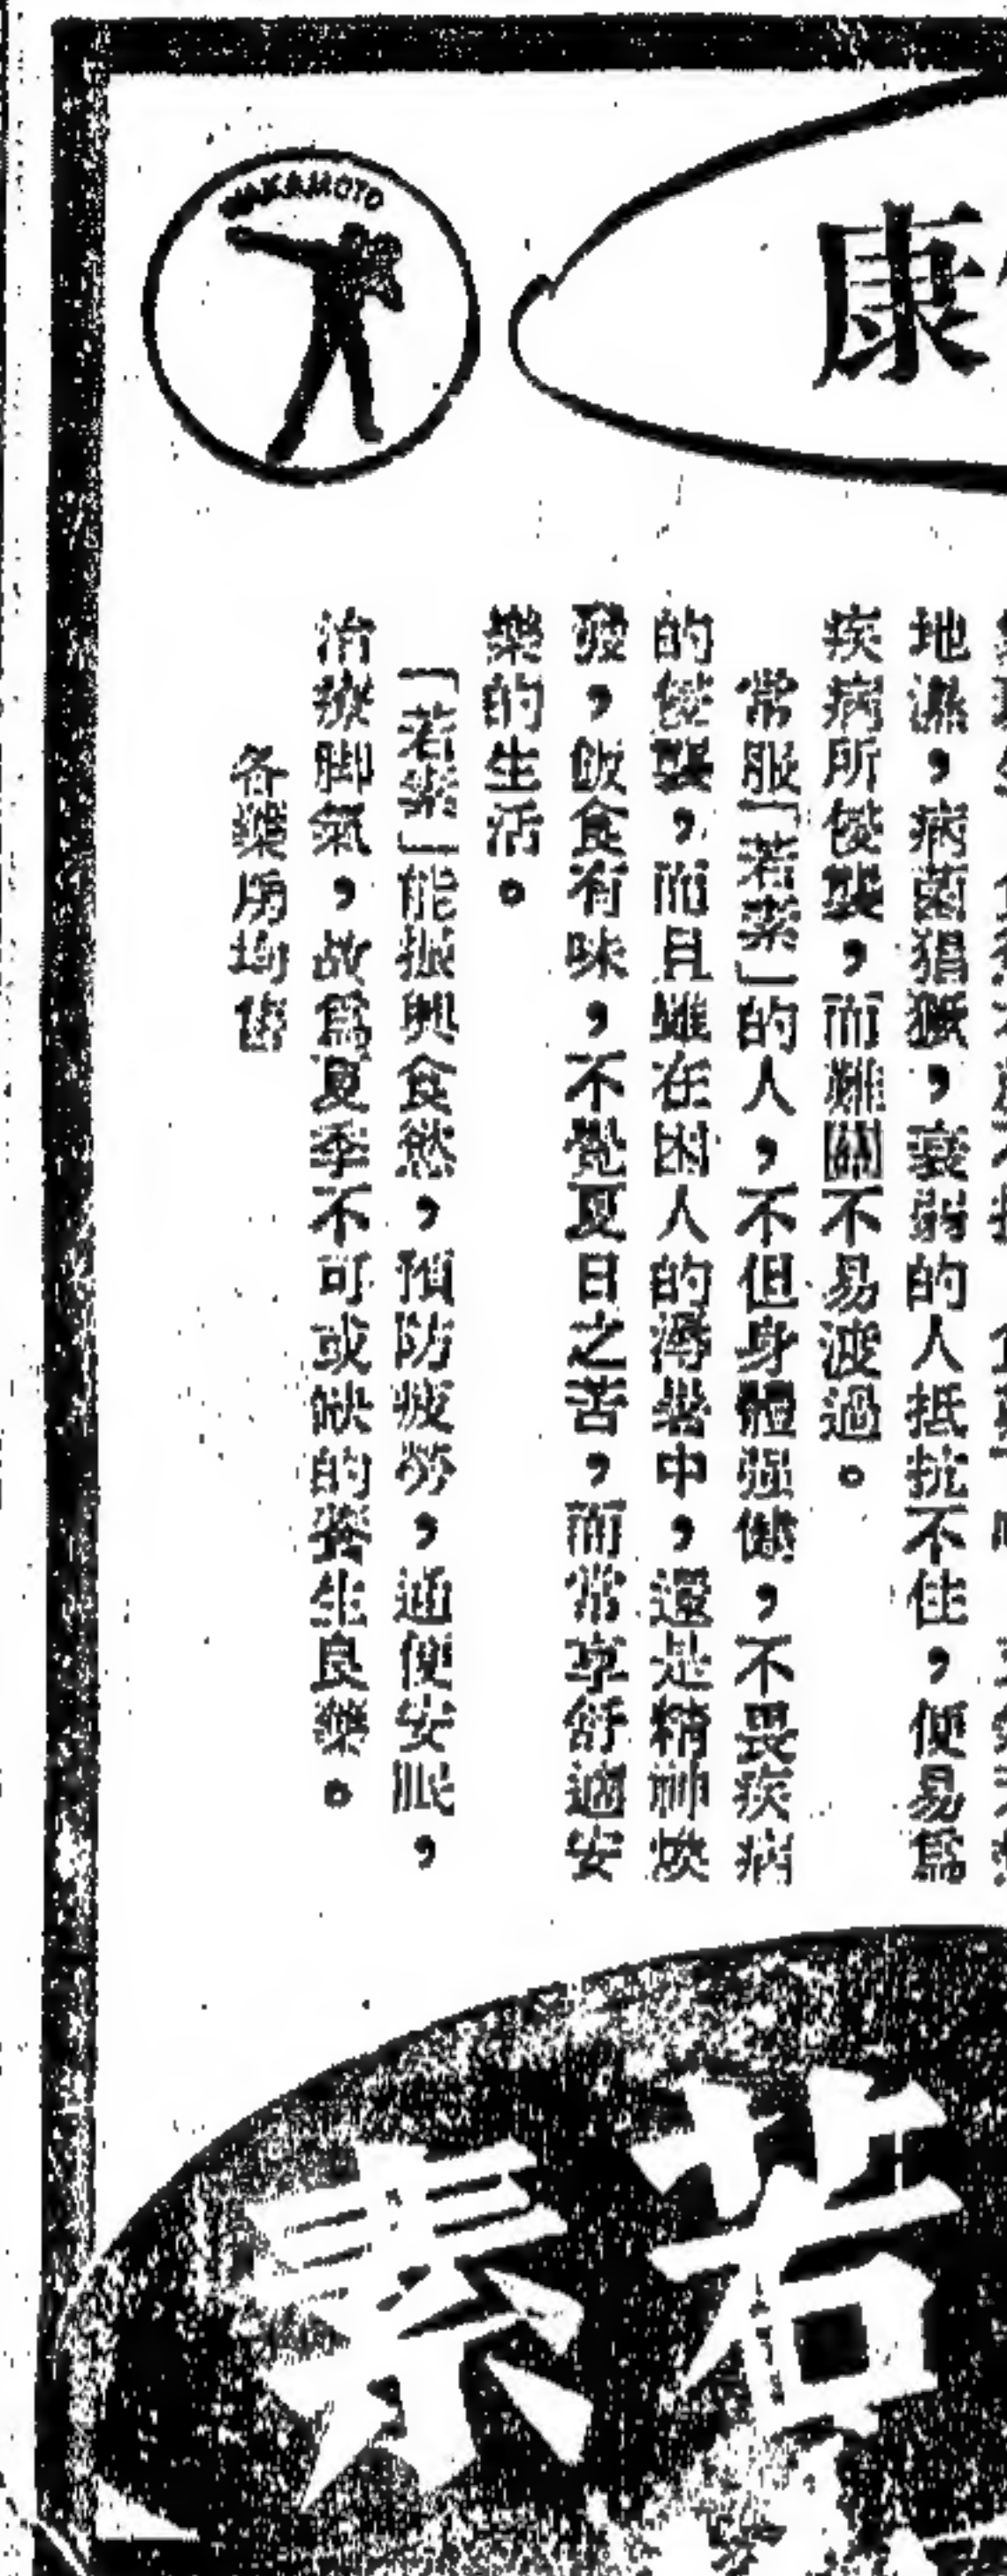 WAKAMOTO
康
地濕，病菌猖獗，衰弱的人抵抗不住，便易爲
疾病所侵襲，而難關不易渡過。
常服「若素」的人，不但身體强健，不畏疾病
的侵襲，而且雖在困人的溽暑中，還是精神煥
發，飲食有味，不覺夏日之苦，而常享舒適安
樂的生活。
「若素」能振興食慾，預防疲勞，通便安眠，
治療脚氣，故爲夏季不可或缺的養生良藥。
各藥房均售
若素